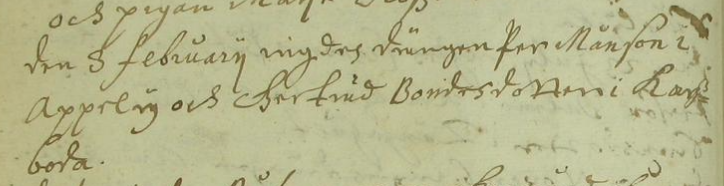 och pigan
den 8 februarij vigdes drängen Per Månson i
Appelby och Chertrud Bondesdotter i Kars=
boda.